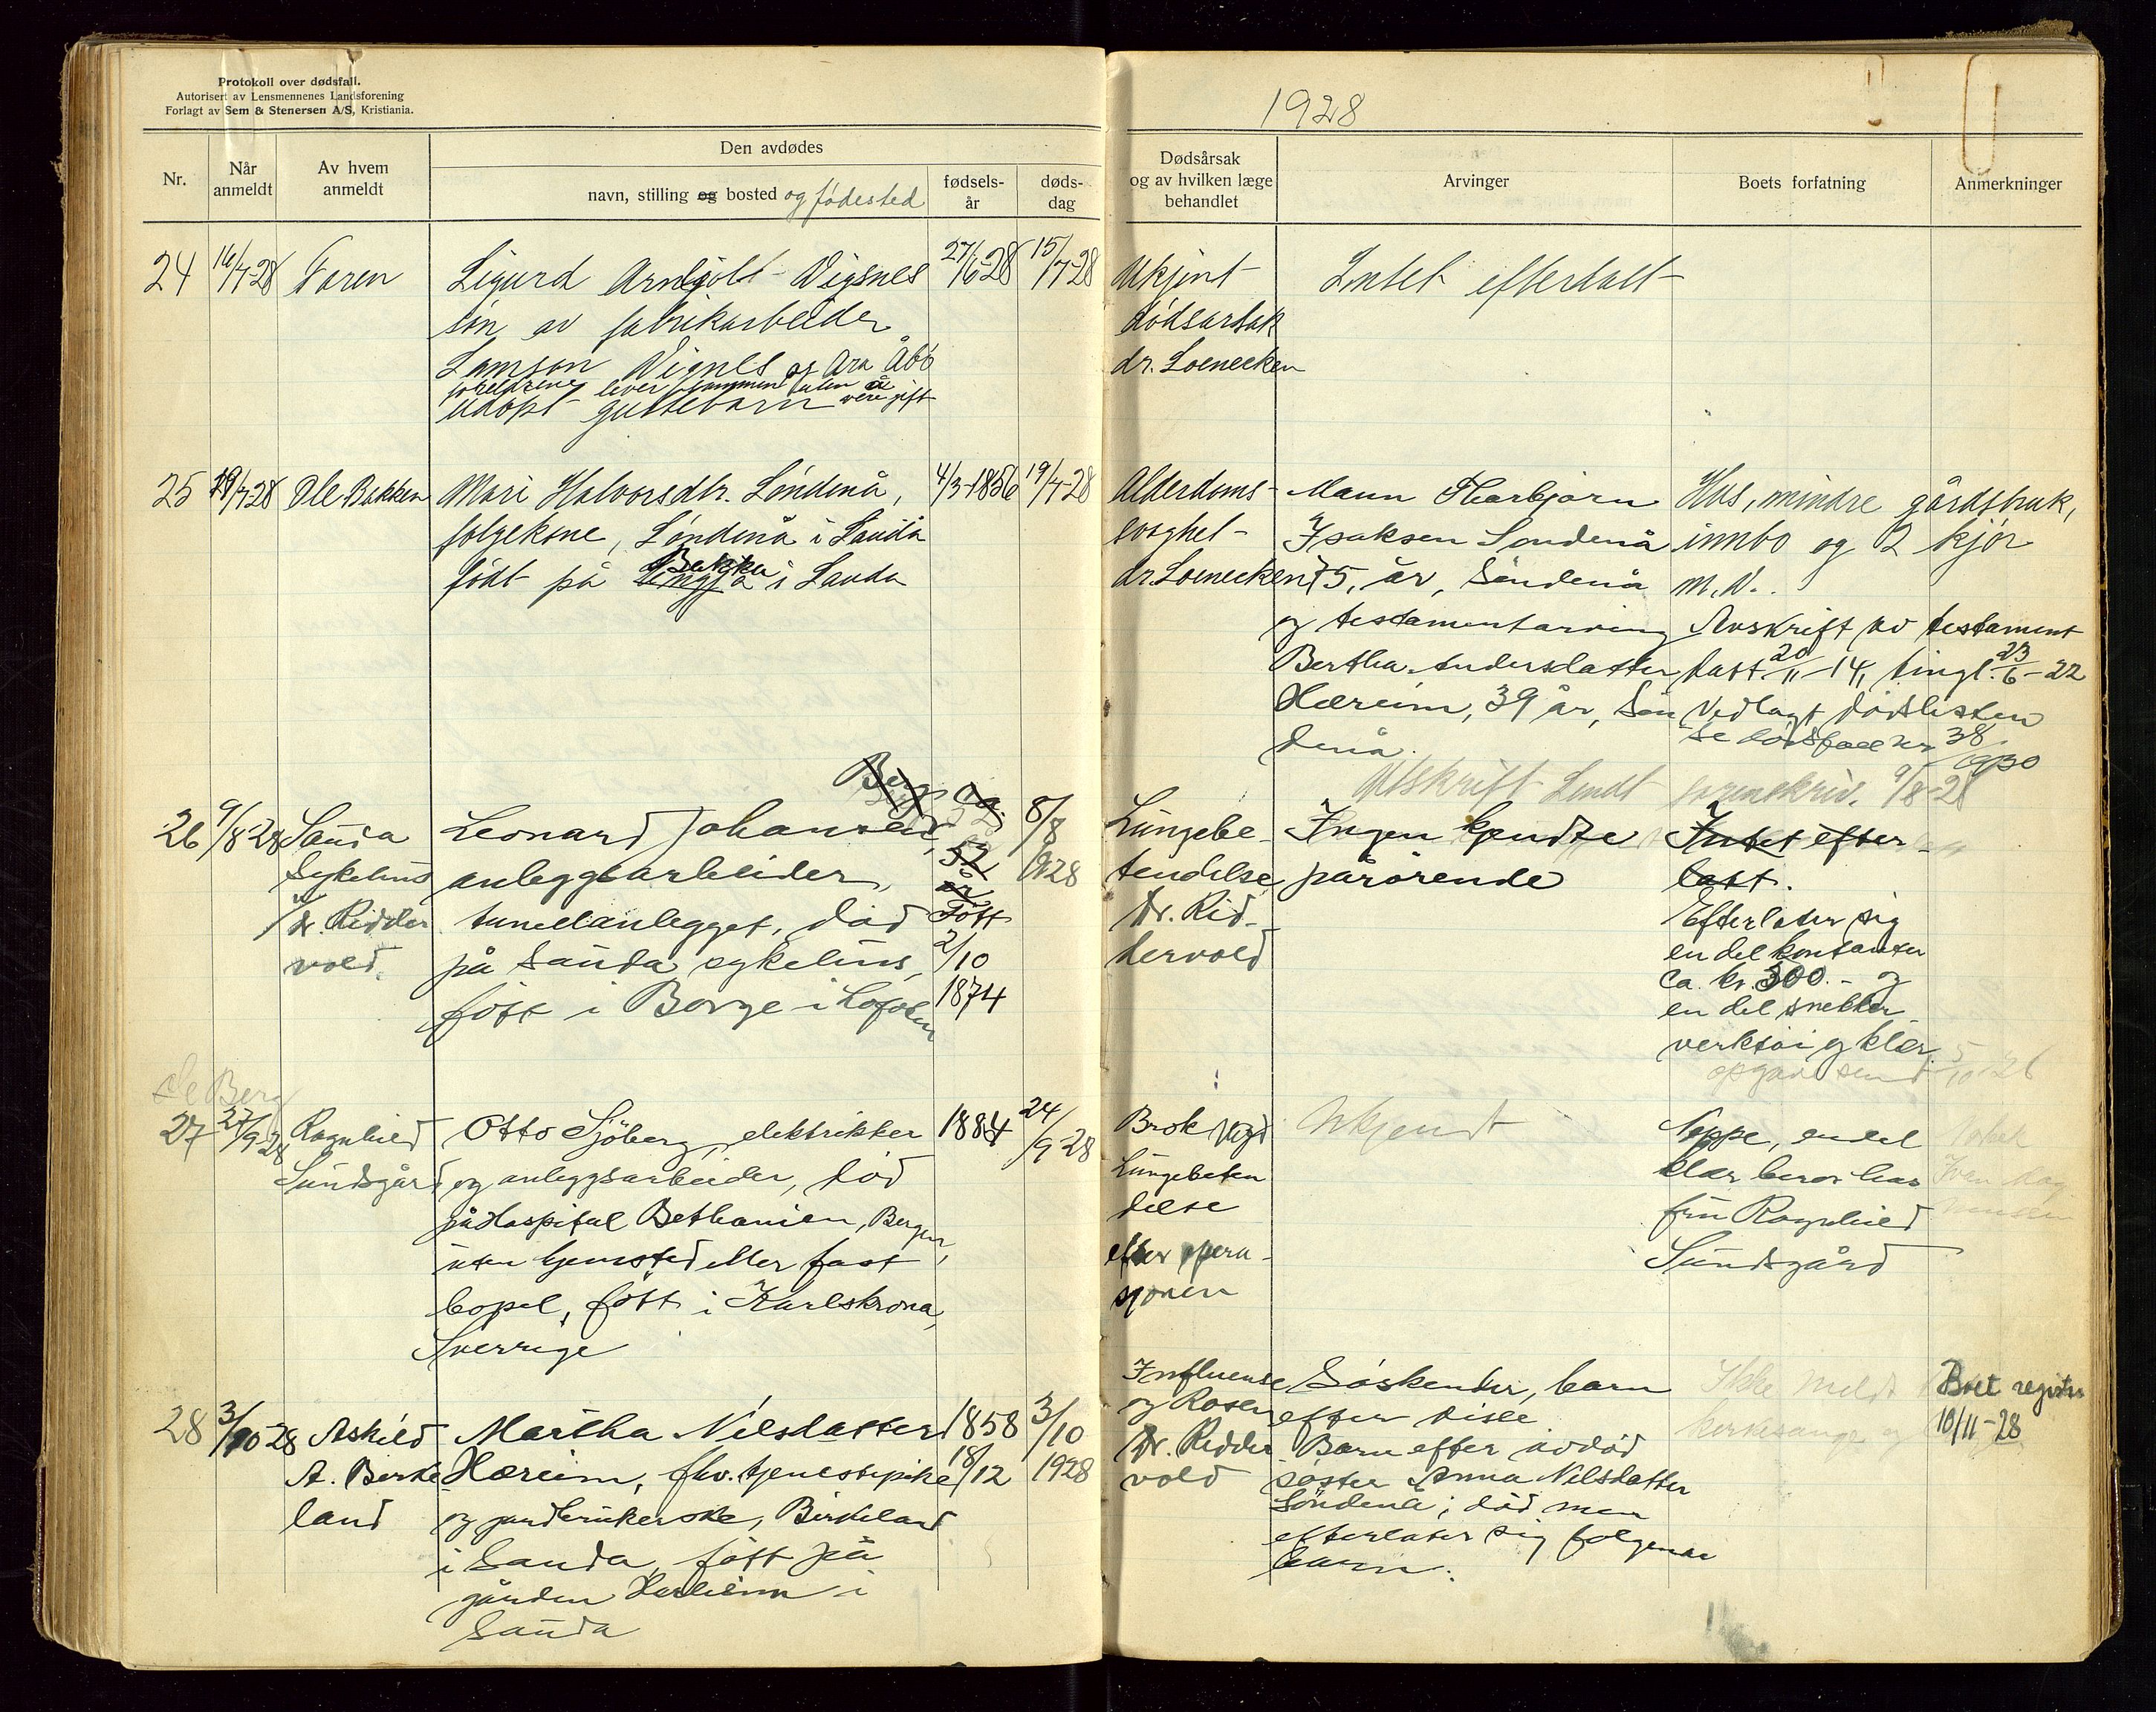 Protokoll over dødsfall.
Autorisert av Lensmennenes Landsforening
Forlagt av Sem & Stenersen A/S, Kristiania.
1928
Nr.
Når
anmeldt
Av hvem
anmeldt
Den avdødes
navn, stilling og bosted og fødested
fødsels-
år
døds-
dag
Dødsårsak
og av hvilken læge
behandlet
Arvinger
Boets forfatning
Anmerkninger
24
16/7-28
Faren
Sigurd Arnljolt Vigsnes
søn av fabrikarbeider
Samson Vignes og Ara Åbø
foreldrene lever sammen uten å
være gift
udøpt guttebarn
27/6-28
15/7-28
Ukjent
dødsårsak
dr. Loenecken
Intet efterlatt
25
29/7-28
Ole Bakken
Mari Halvorsdtr. Søndenå,
folgekone, Søndenå i Sauda
Bakka
født på i Sauda
4/3-1856
19/7-28
Alderdoms-
svaghet
dr. Loenecken
Mann Thorbjørn
Isaksen Søndenå
75, år, Søndenå
og testamentarving
Bertha Andersdatter
Hæreim, 39 år, Søn
denå.
Hus, mindre gårdsbruk,
innbo og 2 kjør
m.v.
Avskrift av testament
dat. 20/11-14, tingl. 23/6-22
Vedlagt dødslisten
Se dødsfall nr 38/1930
Utskrift sendt sorenskriv. 9/8-28
26
9/8-28
Sauda
Sykehus
v/
dr. Ridder
vold.
Berg
Leonard Johansen,
anleggsarbeider,
tunellanlegget, død
på Sauda sykehus,
født i Borge i Lofoten
ca.
52
år
Født
2/10
1874
8/8
1928
Lungebe-
tendelse
Dr. Rid-
dervold
Ingen kjendte
pårørende
Intet efter-
latt.
Efterlater sig
en del kontanter
ca. kr. 300.- og
en del snekker-
verktøi og klær.
opgave sendt 5/10-26
Se Berg
27
27/9-28
Ragnhild
Sundsgård
Otto Sjöberg, elektriker
og anleggsarbeider, død
på Hospital Bethanien, Bergen,
uten hjemsted eller fast
bopel, født i Karlskrona,
Sverrige
1884
24/9-28
Brok
Lungebeten
delse
efter opera-
sjonen
Ukjendt
Neppe, endel
klær beror hos
fru Ragnhild
Sundsgård
28
3/10-28
Askild
A. Birke
land
Martha Nilsdatter
Hæreim, fhv. tjenestepike
og gardbrukerske, Birkeland
i Sauda, født på
gården Hæreim i
Sauda
1858
18/12
3/10
1928
Influense
og Rosen
Dr. Ridder
vold
Søskender, barn
efter disse
Barn efter avdød
søster Anna Nilsdatter
Søndenå; død men
efterlater sig følgende
barn:
Ikke meldt
Boet registr
10/11-28